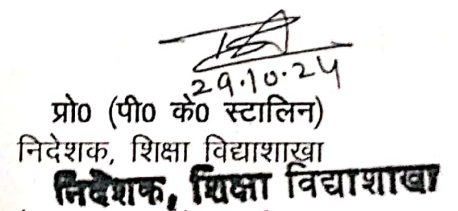 29.10.24
प्रो0 (पी0 के0 स्टालिन)
निदेशक, शिक्षा विद्याशाखा
निदेशक, शिक्षा विद्याशाखा